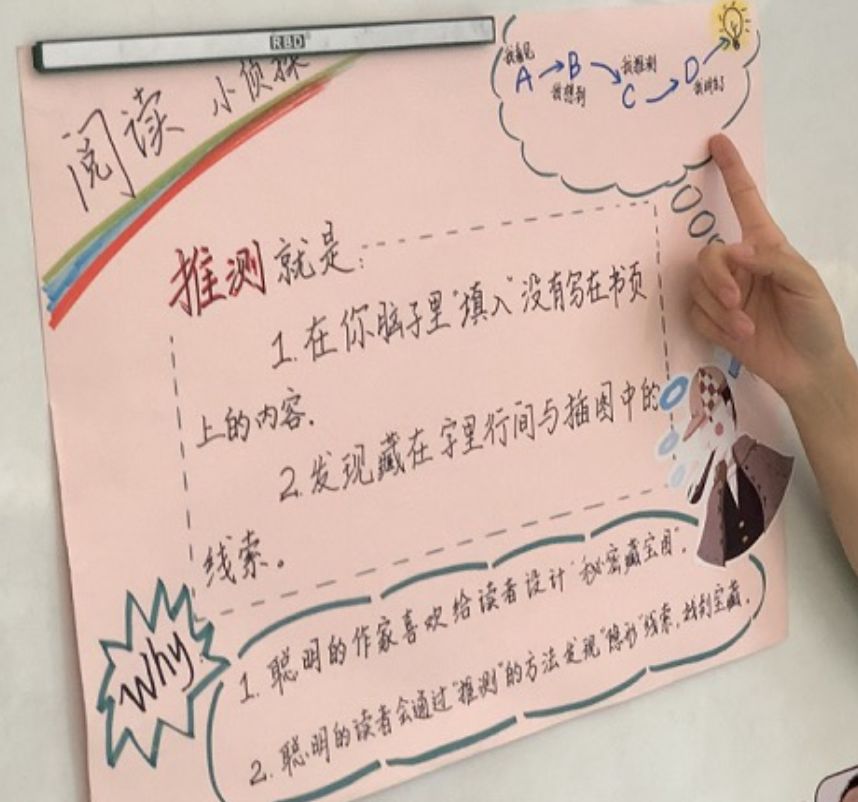 RBD
阅读 小侦探
我看见
A → B → C → D
我想到
我推测
推测就是:
1.在你脑子里“填入”没有写在书页
上的内容.
2.发现藏在字里行间与插图中的
线索。
Why
1. 聪明的作家喜欢给读者设计“秘密藏宝图”.
2. 聪明的读者会通过“推测”的方法发现“隐形”线索,找到宝藏.